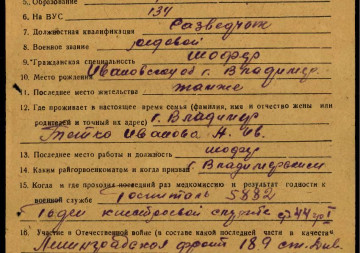 5. Образование
6. На ВУС 134
7. Должностная квалификация Разведчик
8. Военное звание рядовой
9. Гражданская специальность шофер
10. Место рождения Ивановская об г. Владимир.
11. Последнее место жительства также
12. Где проживает в настоящее время семья (фамилия, имя и отчество жены или
родителей и точный их адрес) г. Владимир
Иванова А. Ив.
13. Последнее место работы и должность шофер
14. Каким райгорвоенкоматом и когда призван г. Владимирским
15. Когда и где проходил последний раз медкомиссию и результат годности к
военной службе Госпиталь 5882
Годен к строевой службе
16. Участие в Отечественной войне (в составе какой последней части и в качестве
Ленинградский фронт 189 стр. див.